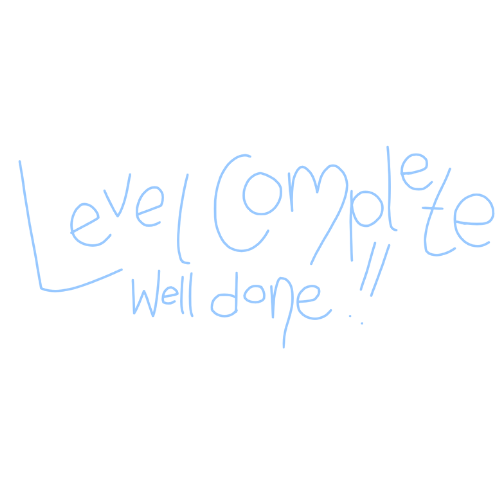 Level Complete
Well done!!